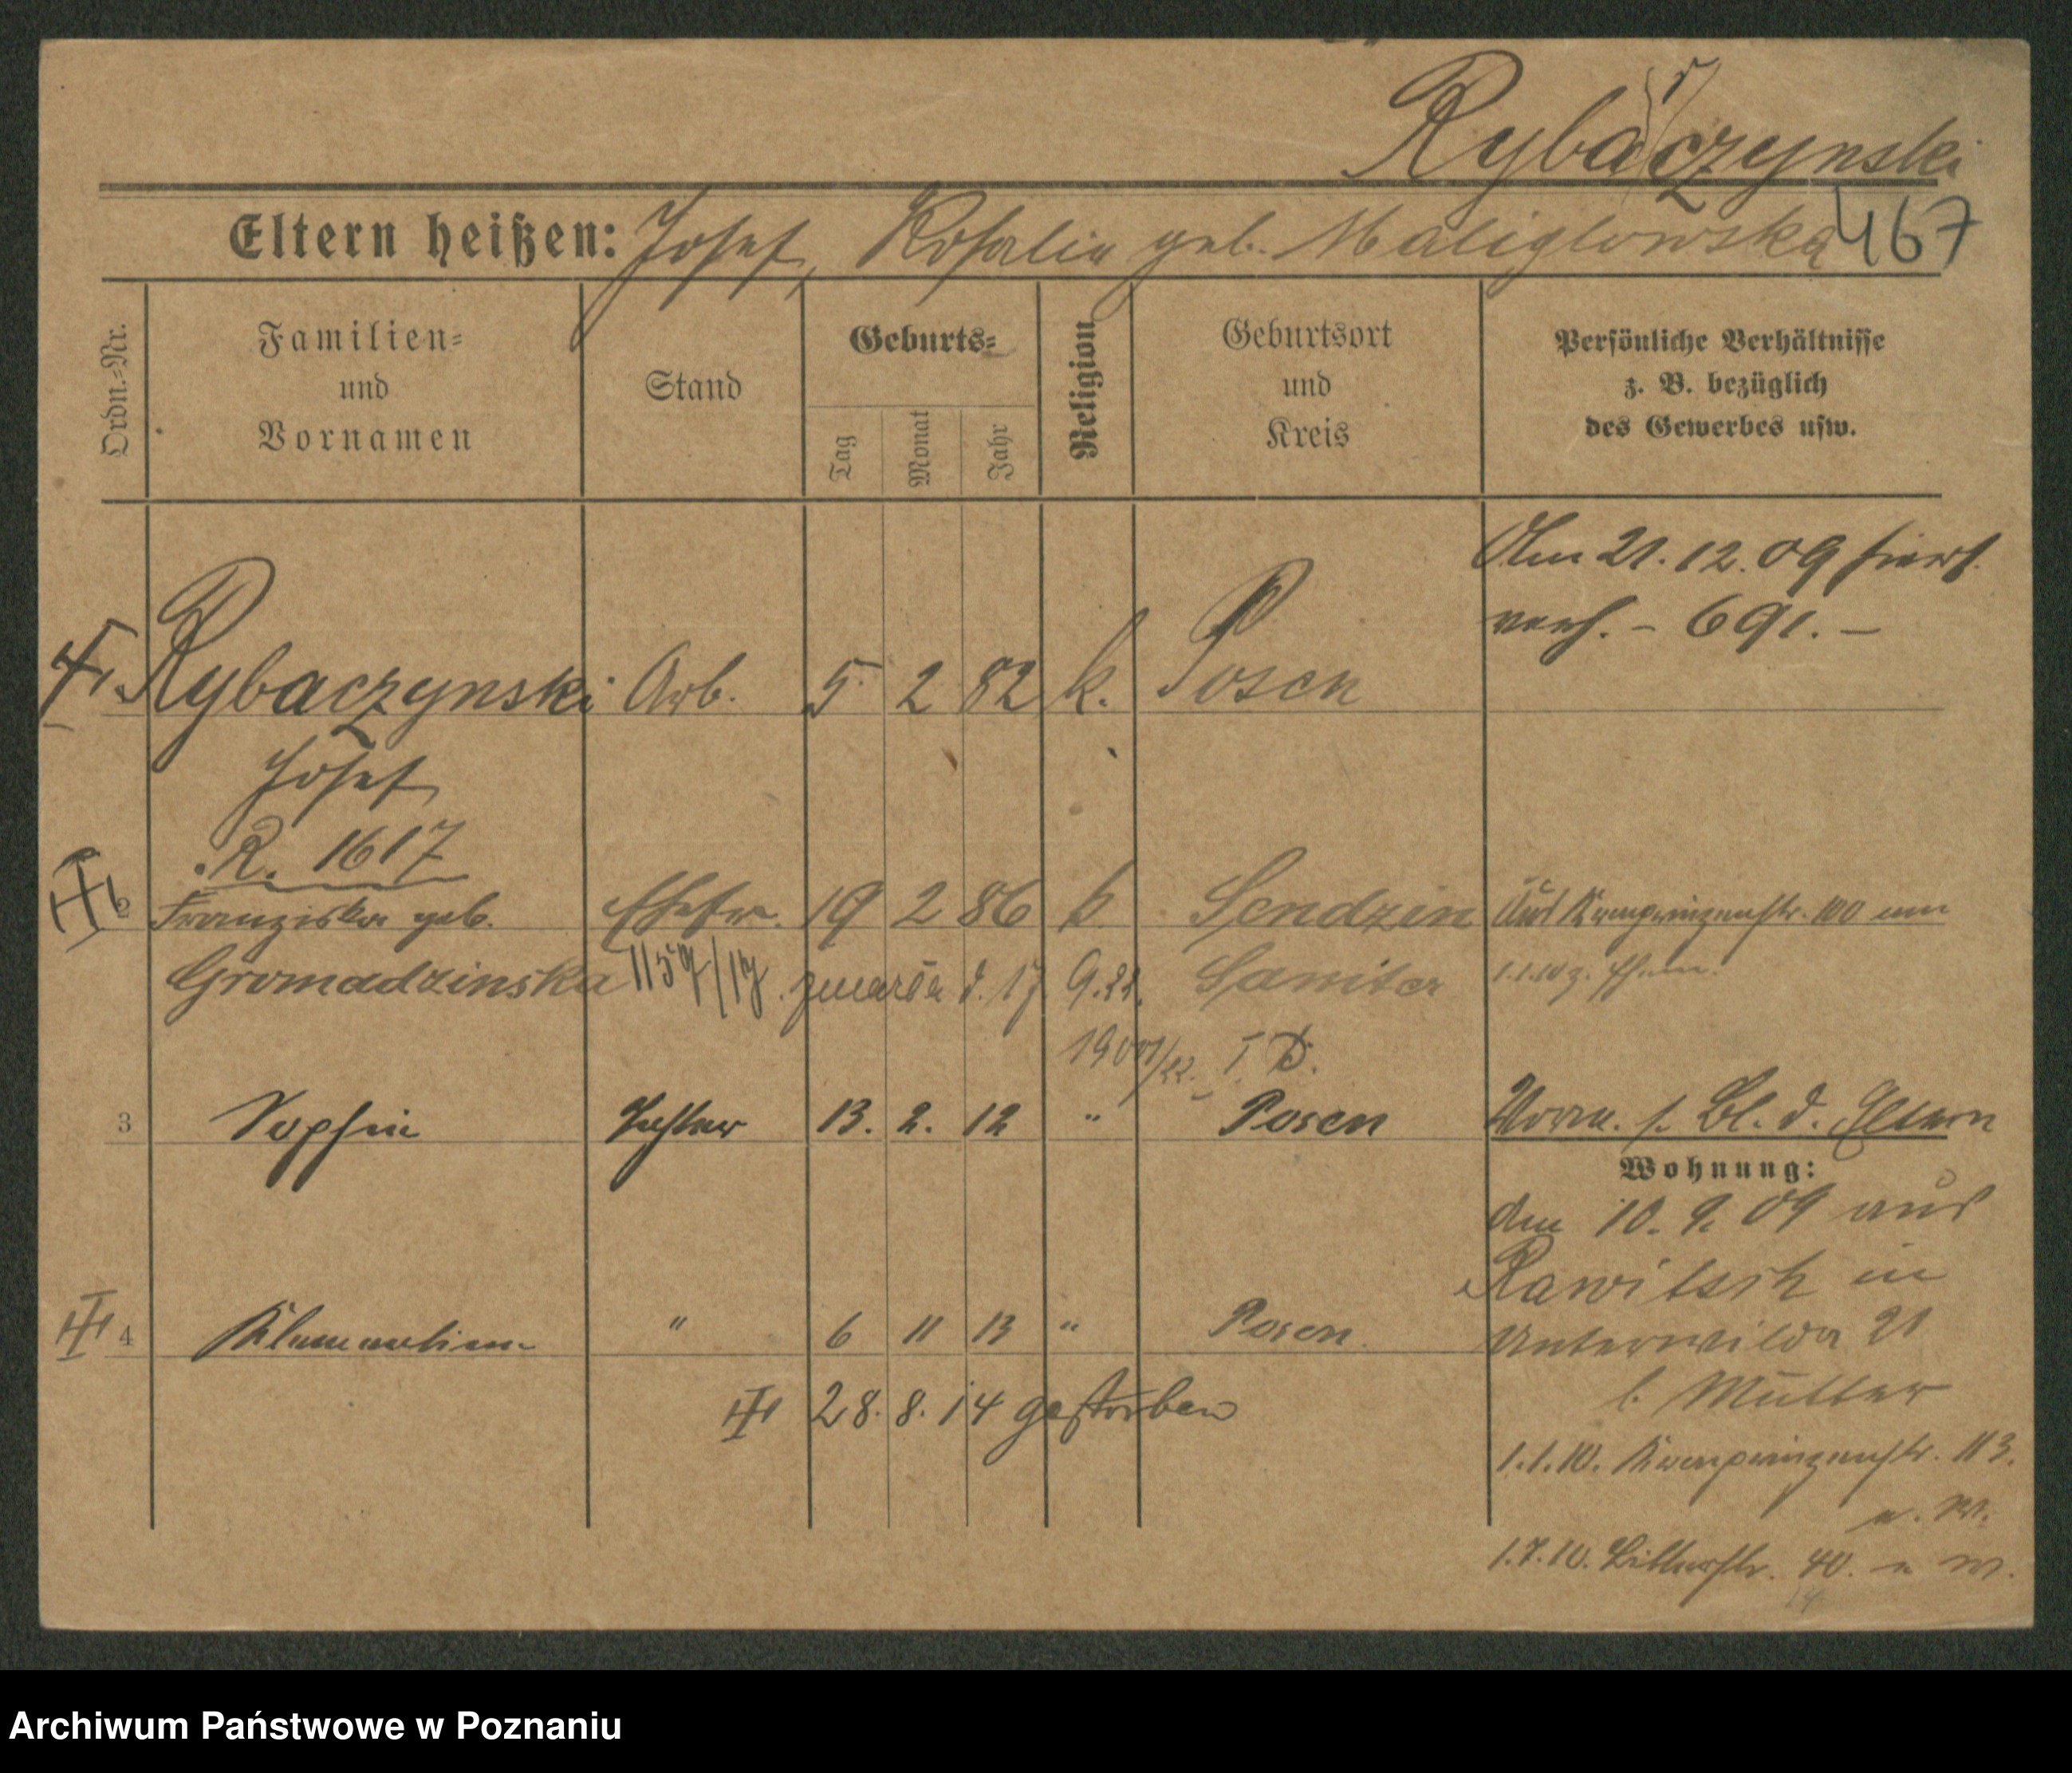 Rybaczynski
r
Eltern heißen: Josef, Rosalie geb. Maliglowska
467
Ordn.-Nr.
Familien-
und
Vornamen
Stand
Geburts-
Tag
Monat
Jahr
Religion
Geburtsort
und
Kreis
Persönliche Verhältnisse
z. B. bezüglich
des Gewerbes usw.
Am 21.12.09 hierf.
verh. - 691. -
1. Rybaczynski Arb. 5 2 82 k. Posen
Josef
R. 1617
2 Franziska geb. Ehefr. 19 2 86 k. Sendzin Aus Kronprinzenstr. 100 am
Gromadzinska 1159/17 zmarła d. 17. 9. 22. Samter 1.1.10 z. Ehem.
1900/22. I D.
3 Sophie Tochter 13. 2. 12 " Posen Vorm. s. Bl. d. Eltern
Wohnung:
den 10. 9. 09 aus
Rawitsch in
4 " 6 11 13 " Posen Unterwilda 21
b. Mutter
28. 8. 14 gestorben
1.1.10. Kronprinzenstr. 113.
u. W.
1.7.10. Bitterstr. 40. u W.
Archiwum Państwowe w Poznaniu